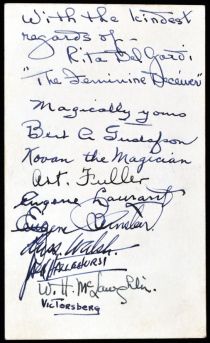 With the kindest
regards of—
Rita Del Gardi
"The Feminine Deceiver"
Magically yours
Bert G. Gustafson
Kovan the Magician
Art. Fuller
Eugene Laurant
Eugene
Walsh.
Jack Hallehurst
W. H. McLaughlin.
Victorsberg